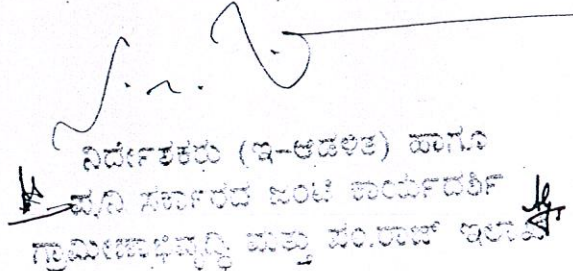 ನಿರ್ದೇಶಕರು (ಇ-ಆಡಳಿತ) ಹಾಗೂ
ಪ.ನಿ ಸರ್ಕಾರದ ಜಂಟಿ ಕಾರ್ಯದರ್ಶಿ
ಗ್ರಾಮೀಣಾಭಿವೃದ್ಧಿ ಮತ್ತು ಪಂ.ರಾಜ್ ಇಲಾಖೆ